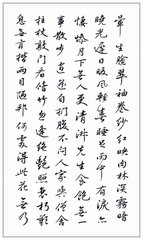 暈生臉翠袖卷紗紅映肉林深霧暗
曉光遲日暖風輕春睡足雨中有淚亦
悽愴月下無人更清淑先生食飽無一
事散步逍遙自捫腹不問人家與僧舍
拄杖敲門看修竹忽逢絕艷照衰朽歎
息無言揩病目陋邦何處得此花無乃